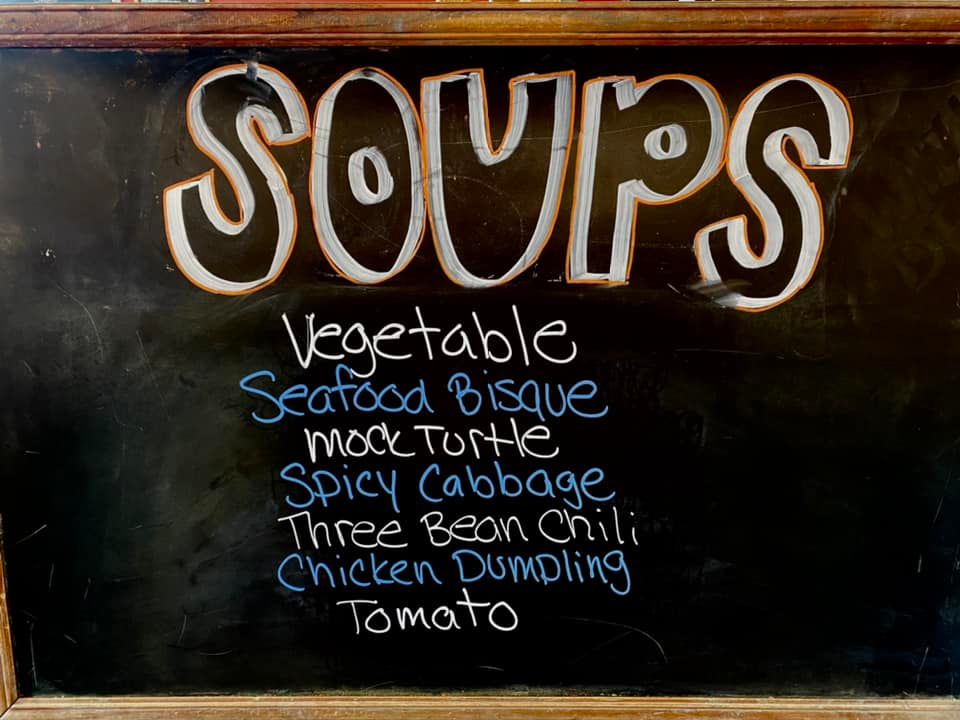 SOUPS
Vegetable
Seafood Bisque
Mock Turtle
Spicy Cabbage
Three Bean Chili
Chicken Dumpling
Tomato